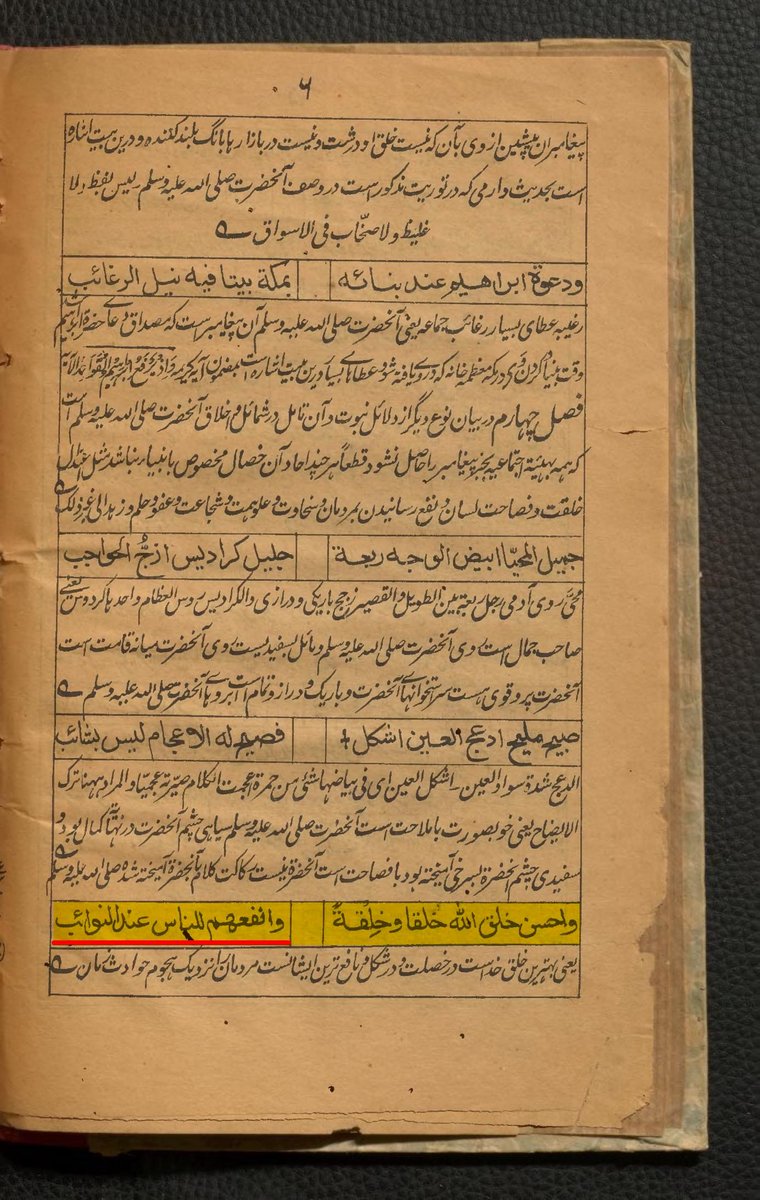 ۶
پیغامبران پیشین از وی بآن که نیست خلق او درشت و نیست در بازارها بانگ بلند کننده و درین بیت اشاره
است بحدیث دارمی که در توریت مذکور است در وصف آنحضرت صلی الله علیه وسلم لیس بفظ ولا
غلیظ ولا صخّاب فی الاسواق
ودعوة ابراهیم عند بنائه بمکة بیتا فیه نیل الرغائب
رغیبه عطای بسیار رغائب جماعه یعنی آنحضرت صلی الله علیه وسلم آن پیغامبر است که مصداق دعای حضرة ابراهیم است
وقت بنیاد کردن وی در مکه معظمه خانه که در وی یافته شود عطاهای بسیار درین بیت اشاره است بمضمون آیه کریمه واذ یرفع ابراهیم القواعد الآیة
فصل چهارم در بیان نوع دیگر از دلائل نبوت و آن تامل در شمائل و اخلاق آنحضرت صلی الله علیه وسلم است
که همه بهیئة اجتماعیه بجز پیغامبر را حاصل نشود قطعاً هر چند احاد آن خصال مخصوص بانبیا نباشد مثل اعتدال
خلقت و فصاحت لسان و نفع رسانیدن بمردمان و سخاوت و علو همت و شجاعت و عفو و حلم و زهد الی غیر ذلک
جمیل المحیّا ابیض الوجه ربعة جلیل کرادیس ازجُّ الحواجب
محیّ روی آدمی رجل ربعة بین الطویل والقصیر زجج باریکی و درازی والکرادیس روس العظام واحدها کردوس یعنی
صاحب جمال است روی آنحضرت صلی الله علیه وسلم و مائل بسفیدیست روی آنحضرت میانه قامت است
آنحضرت پر و قوی هست سر استخوانهای آنحضرت و باریک و دراز و تمام است ابروهای آنحضرت صلی الله علیه وسلم
صبیح ملیح ادعج العین اشکل فصیح له الاعجام لیس بشائب
الدعج شدة سواد العین - اشکل العین ای فی بیاضها شئ من حمرة اعجمت الکلام صیّرته عجمیّا والمراد ههنا ترک
الایضاح یعنی خوبصورت با ملاحت است آنحضرت صلی الله علیه وسلم سیاهی چشم آنحضرت در نهایة کمال بود و
سفیدی چشم آنحضرة بسرخی آمیخته بود با فصاحت است آنحضرة نیست رکاکت کلام بآنحضرة آمیخته شده صلی الله علیه وسلم
واحسن خلق الله خُلقا وخِلقةً وانفعهم للناس عند النوائب
یعنی بهترین خلق خداست در خصلت و در شکل و نافع ترین ایشانست مردمان را نزدیک هجوم حوادث زمان